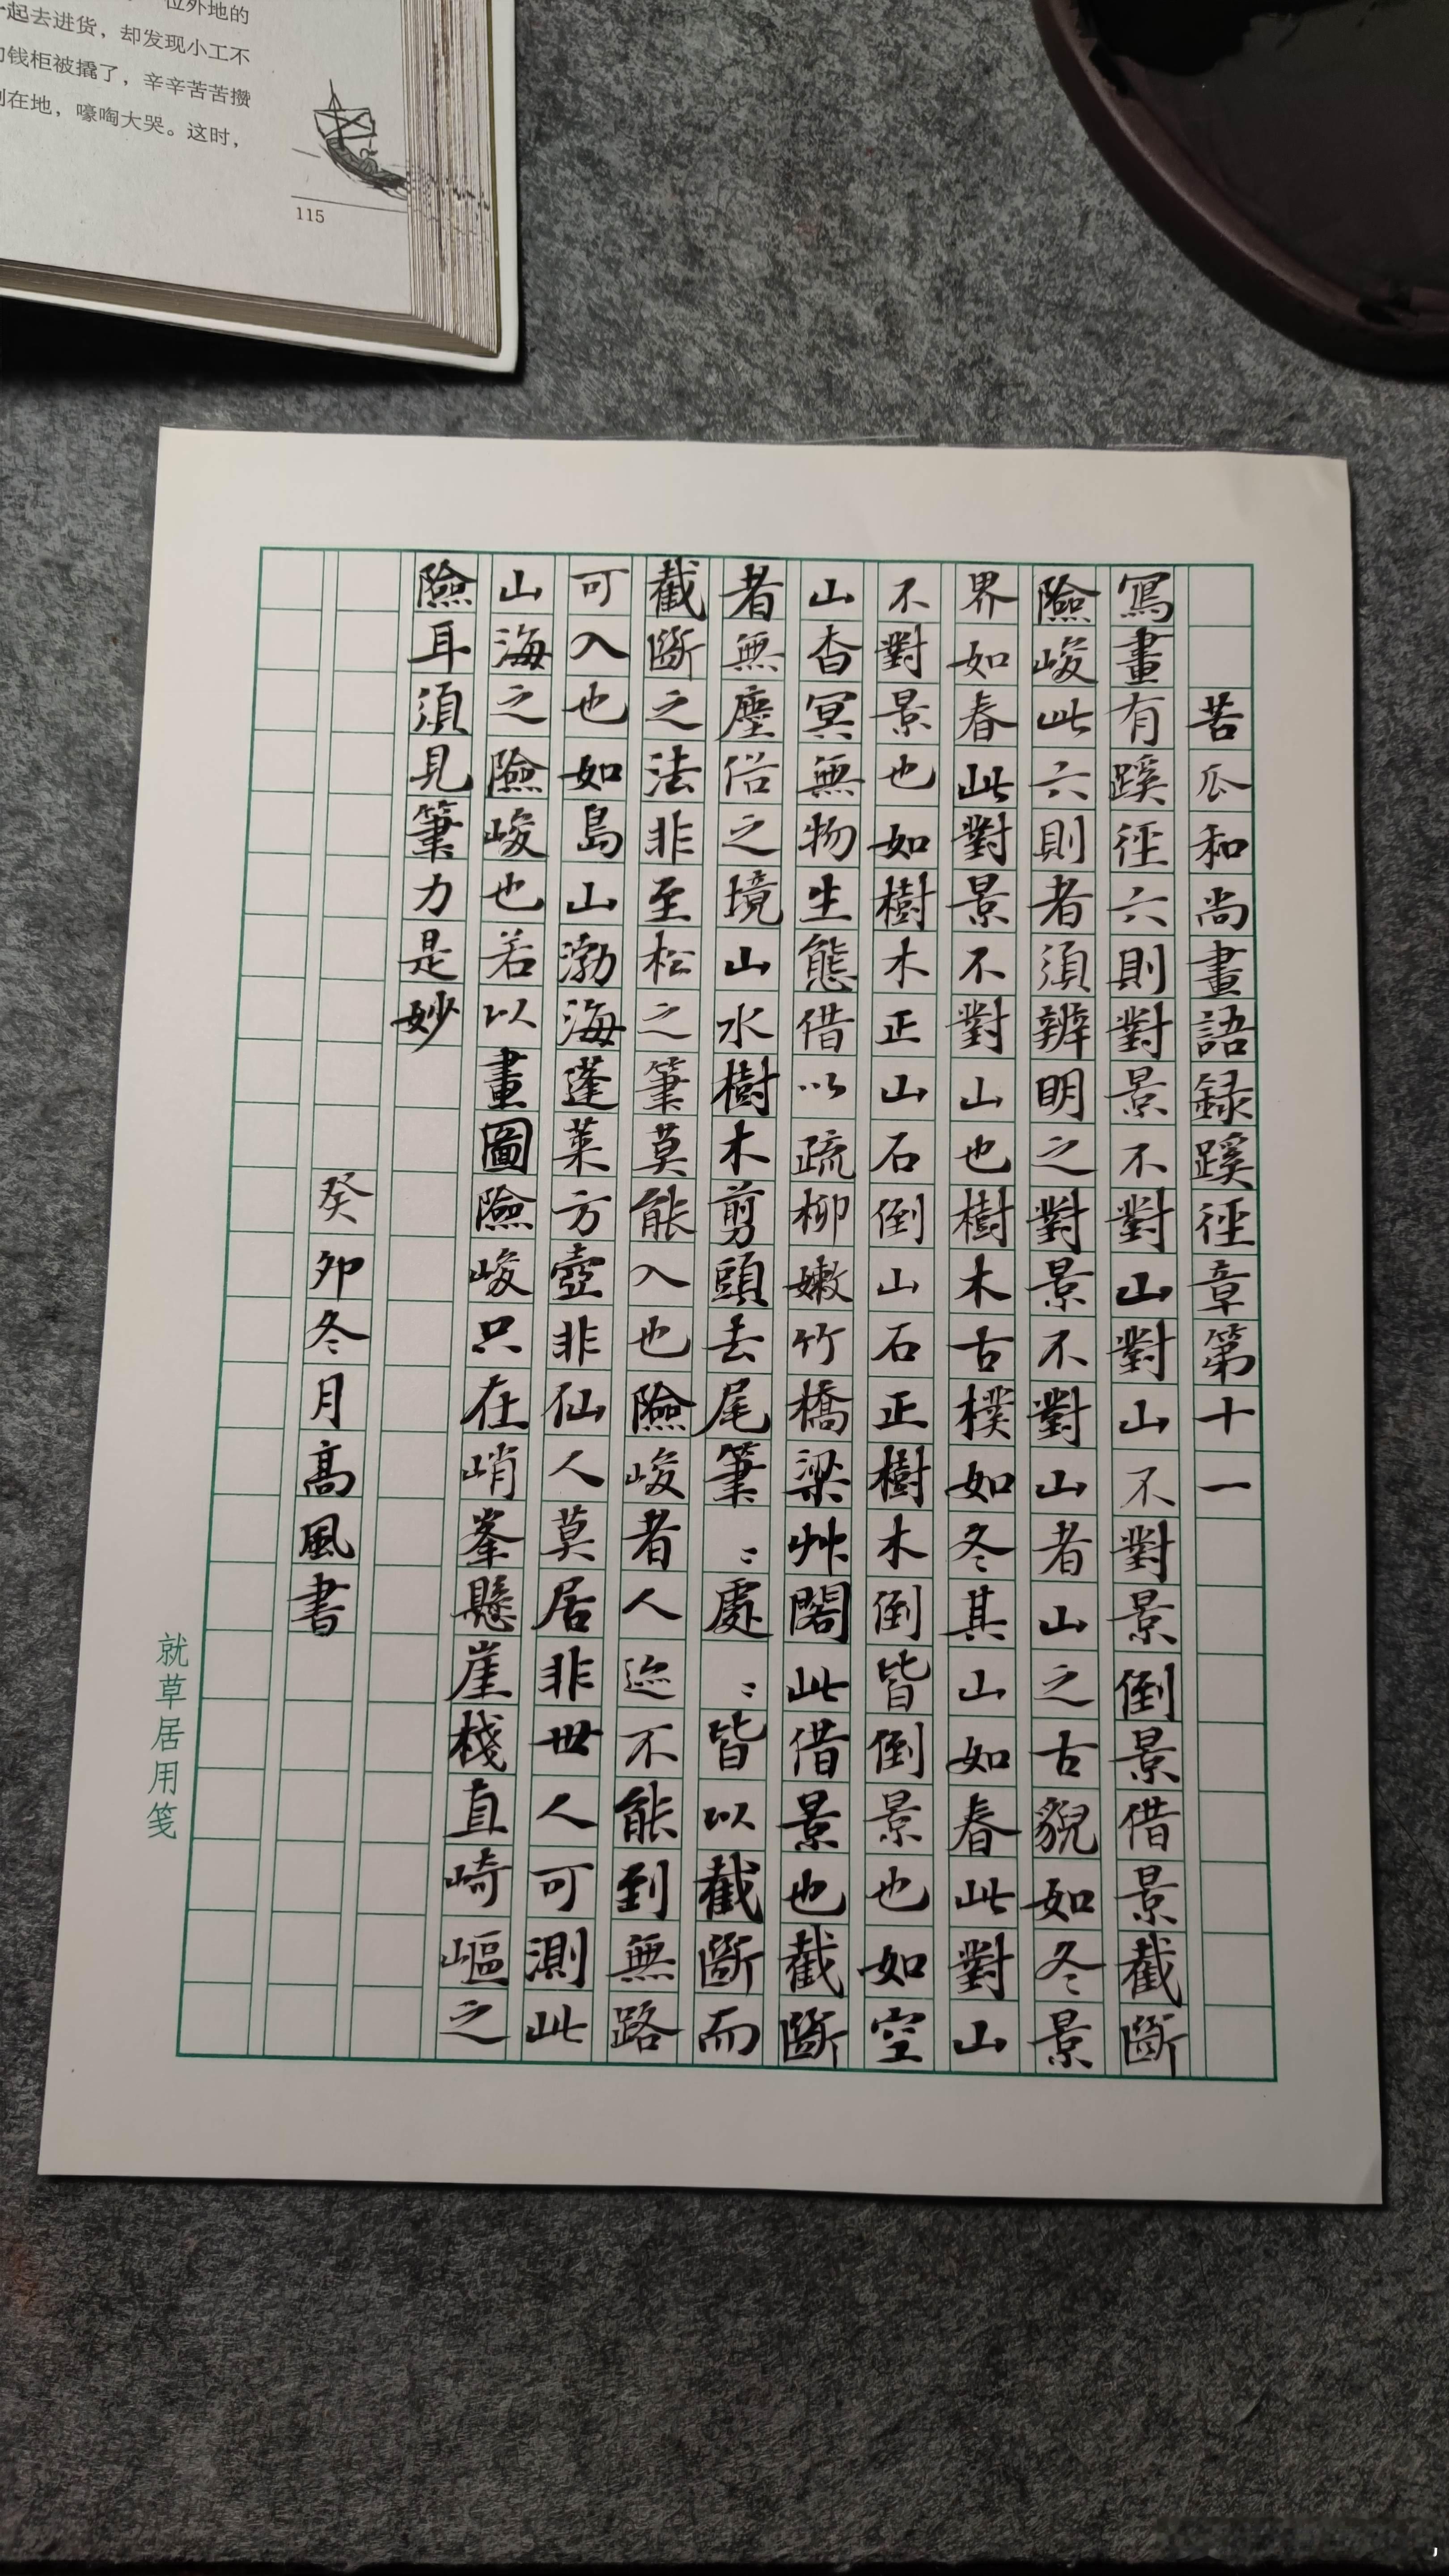 位外地的
起去进货，却发现小工不
钱柜被撬了，辛辛苦苦攒
在地，嚎啕大哭。这时，
115
苦瓜和尚畫語録蹊徑章第十一
寫畫有蹊徑六則對景不對山對山不對景倒景借景截斷
險峻此六則者須辨明之對景不對山者山之古貌如冬景
界如春此對景不對山也樹木古樸如冬其山如春此對山
不對景也如樹木正山石倒山石正樹木倒皆倒景也如空
山杳冥無物生態借以疏柳嫩竹橋梁艸閣此借景也截斷
者無塵俗之境山水樹木剪頭去尾筆〻處〻皆以截斷而
截斷之法非至松之筆莫能入也險峻者人迹不能到無路
可入也如島山渤海蓬萊方壺非仙人莫居非世人可測此
山海之險峻也若以畫圖險峻只在峭峯懸崖棧直崎嶇之
險耳須見筆力是妙
癸卯冬月高風書
就草居用笺